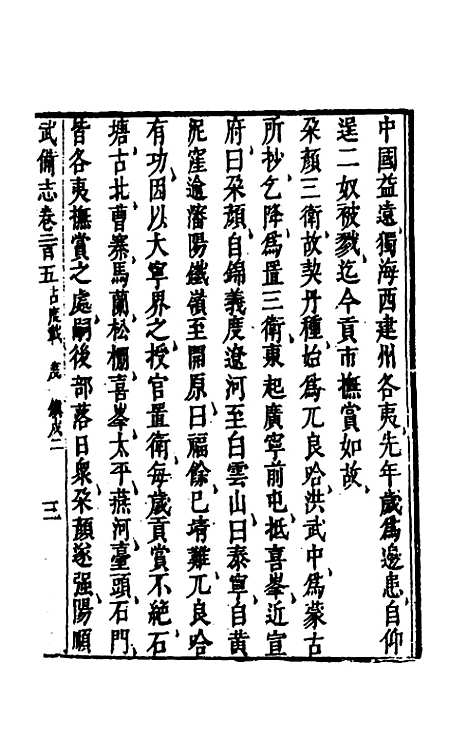 中國益遠獨海西建州各夷先年歲爲邊患自仰
逞二奴被戮迄今貢市撫賞如故
朶顏三衛故契丹種始爲兀良哈洪武中爲蒙古
所抄乞降爲置三衛東起廣寧前屯抵喜峯近宣
府曰朶顏自錦義度遼河至白雲山曰泰寧自黃
泥窪逾瀋陽鐵嶺至開原曰福餘已靖難兀良哈
有功因以大寧界之授官置衛每歲貢賞不絶石
塘古北曹寨馬蘭松棚喜峯太平燕河臺頭石門
皆各夷撫賞之處嗣後部落日衆朶顏遂强陽順
武備志卷二百五 占度載 度 鎮戍二 三